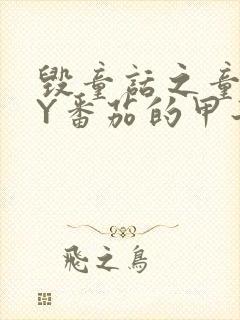 毁童话之童
Y番茄的甲
飛之鳥